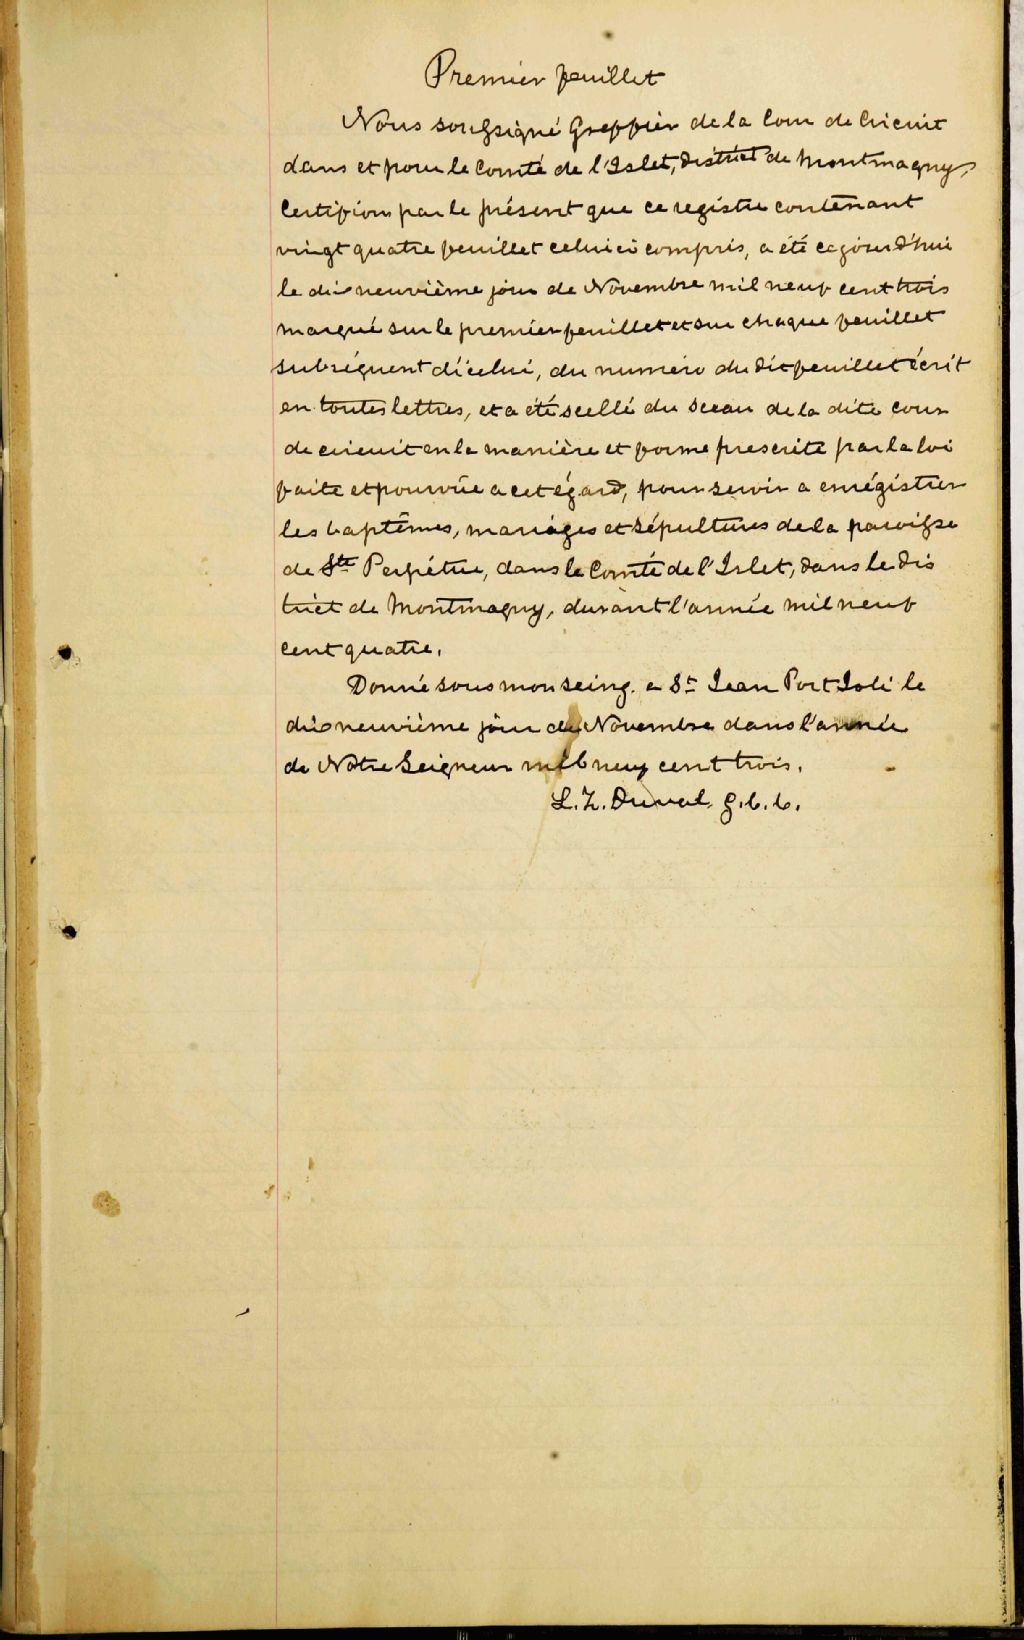 Premier feuillet
Nous soussigné Greffier de la Cour de Circuit
dans et pour le Comté de l'Islet, district de Montmagny,
Certifions par le présent que ce registre contenant
vingt quatre feuillet celui ci compris, a été cejourd'hui
le dix neuvième jour de Novembre mil neuf cent trois
marqué sur le premier feuillet et sur chaque feuillet
subséquent d'icelui, du numéro du dit feuillet écrit
en toutes lettres, et a été scellé du sceau de la dite cour
de circuit en la manière et forme prescrite par la loi
faite et pourvue a cet égard, pour servir a enrégistrer
les baptêmes, mariages et sépultures de la paroisse
de Ste Perpétue, dans le Comté de l'Islet, dans le dis
trict de Montmagny, durant l'année mil neuf
cent quatre.
Donné sous mon seing. a St Jean Port Joli le
dix neuvième jour de Novembre dans l'année
de Notre Seigneur mil neuf cent trois.
L. Z. Duval. g. c. c.